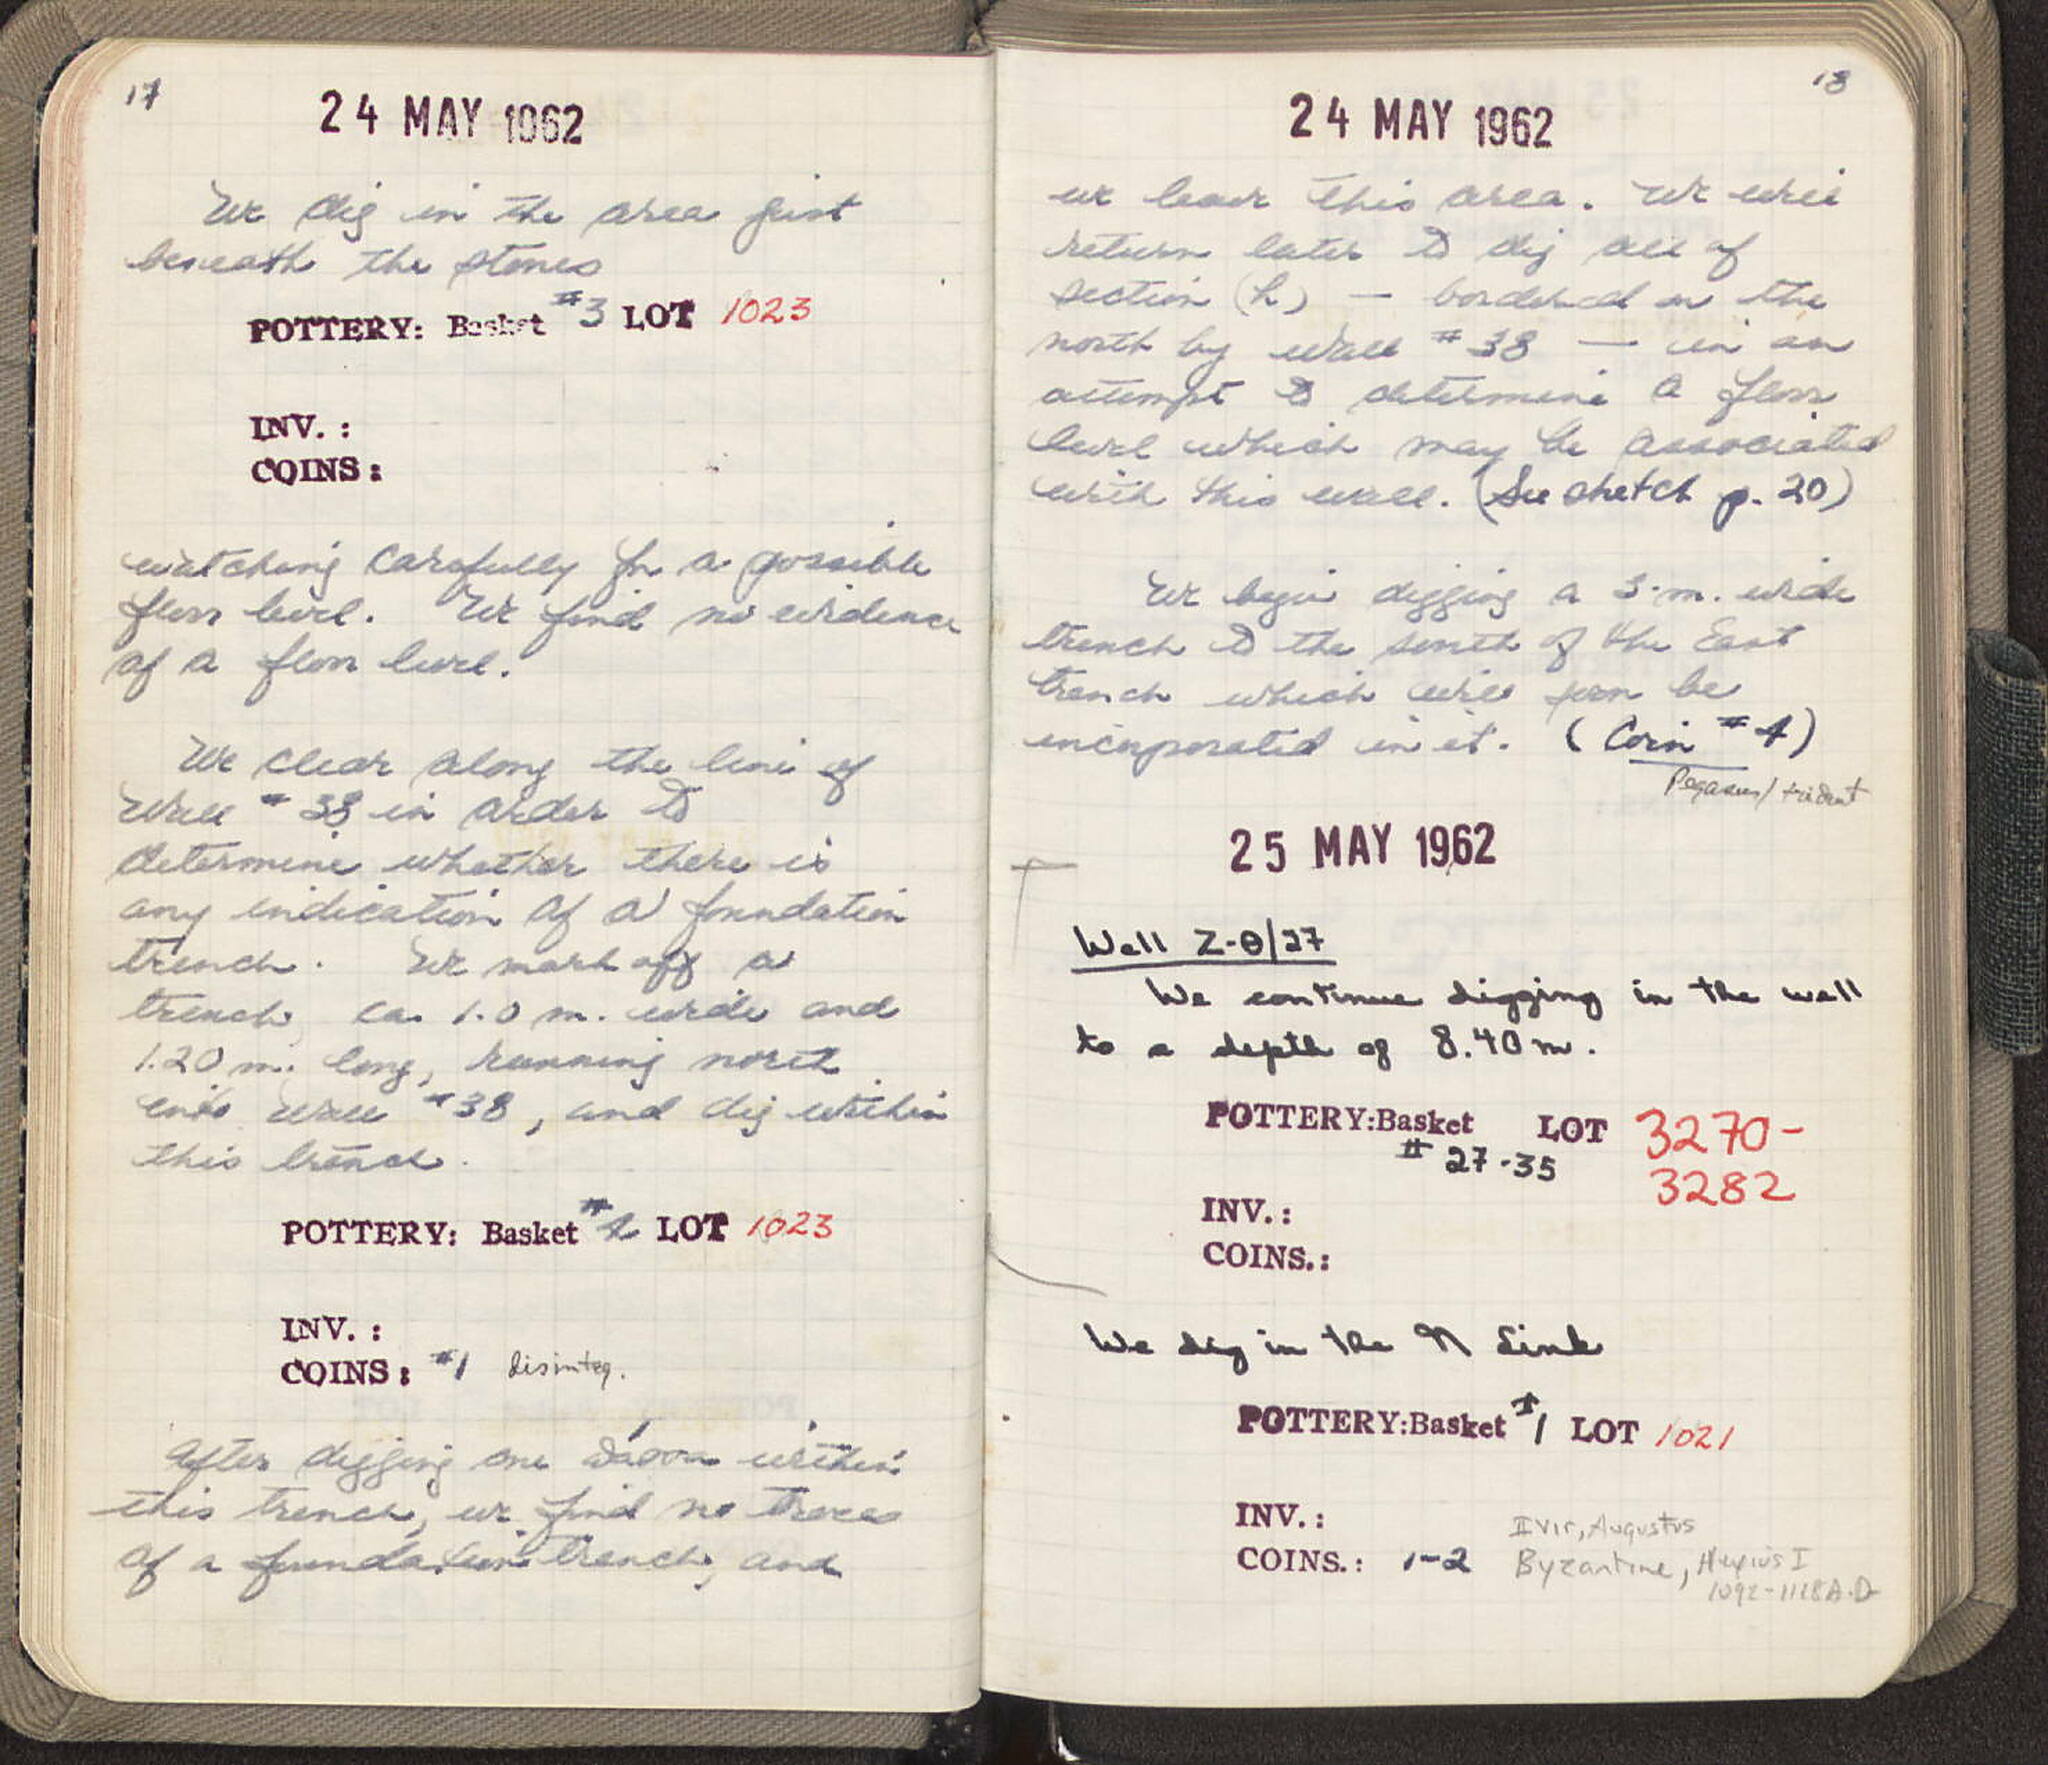 17
24 MAY 1962
We dig in the area just
beneath the stones
POTTERY: Basket #3 LOT 1023
INV. :
COINS :
watching carefully for a possible
floor level. We find no evidence
of a floor level.
We clear along the line of
Wall #38 in order to
determine whether there is
any indication of a foundation
trench. We mark off a
trench, ca. 1.0 m. wide and
1.20 m. long, running north
into wall #38, and dig within
this trench.
POTTERY: Basket #4 LOT 1023
INV. :
COINS : #1 disinteg.
After digging one within
this trench, we find no traces
of a foundation trench, and
18
24 MAY 1962
we leave this area. We will
return later to dig all of
section (h) — bordered on the
north by wall #38 — in an
attempt to determine a floor
level which may be associated
with this wall. (See sketch p. 20)
We begin digging a 3 m. wide
trench to the south of the East
trench which will soon be
incorporated in it. (Coin #4)
Pegasus/trident
25 MAY 1962
Well Z-Θ/27
We continue digging in the well
to a depth of 8.40 m.
POTTERY: Basket LOT 3270-
# 27-35 3282
INV. :
COINS. :
We dig in the N Sink
POTTERY: Basket #1 LOT 1021
INV. :
IIvir, Augustus
COINS. : 1-2 Byzantine, Alexius I
1092-1118 A.D